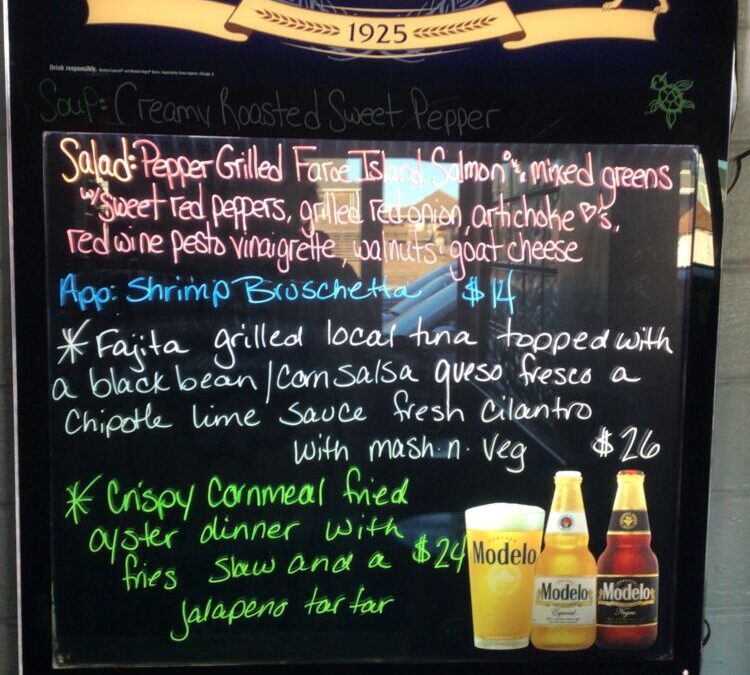 1925
Drink responsibly.
Soup: Creamy Roasted Sweet Pepper
Salad: Pepper Grilled Faroe Island Salmon on mixed greens
w/ sweet red peppers, grilled red onion, artichoke ♡'s,
red wine pesto vinaigrette, walnuts goat cheese
App: Shrimp Bruschetta $14
* Fajita grilled local tuna topped with
a black bean/corn salsa queso fresco a
Chipotle lime sauce fresh cilantro
with mash n veg $26
* Crispy Cornmeal fried
oyster dinner with
fries slaw and a $24
jalapeno tar tar
Modelo
Modelo
Especial
Modelo
Negra